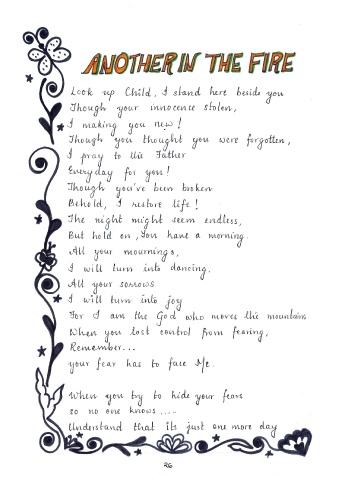 ANOTHER IN THE FIRE
Look up Child, I stand here beside you
Though your innocence stolen,
I making you new!
Though you thought you were forgotten,
I pray to the Father
Everyday for you!
Though you've been broken
Behold, I restore life!
The night might seem endless,
But hold on, You have a morning.
All your mournings,
I will turn into dancing.
All your sorrows
I will turn into joy
For I am the God who moves the mountains
When you lost control from fearing,
Remember...
your fear has to face Me.
When you try to hide your fears
so no one knows.....
Understand that its just one more day
26